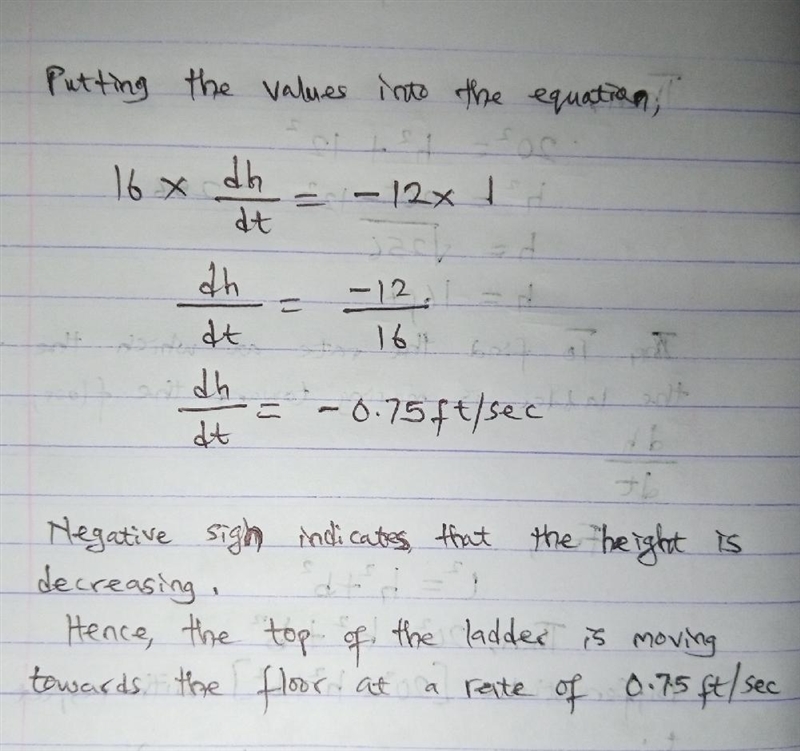 Putting the values into the equation,
16 × dh/dt = -12 × 1
dh/dt = -12/16
dh/dt = -0.75 ft/sec
Negative sign indicates that the height is
decreasing.
Hence, the top of the ladder is moving
towards the floor at a rate of 0.75 ft/sec